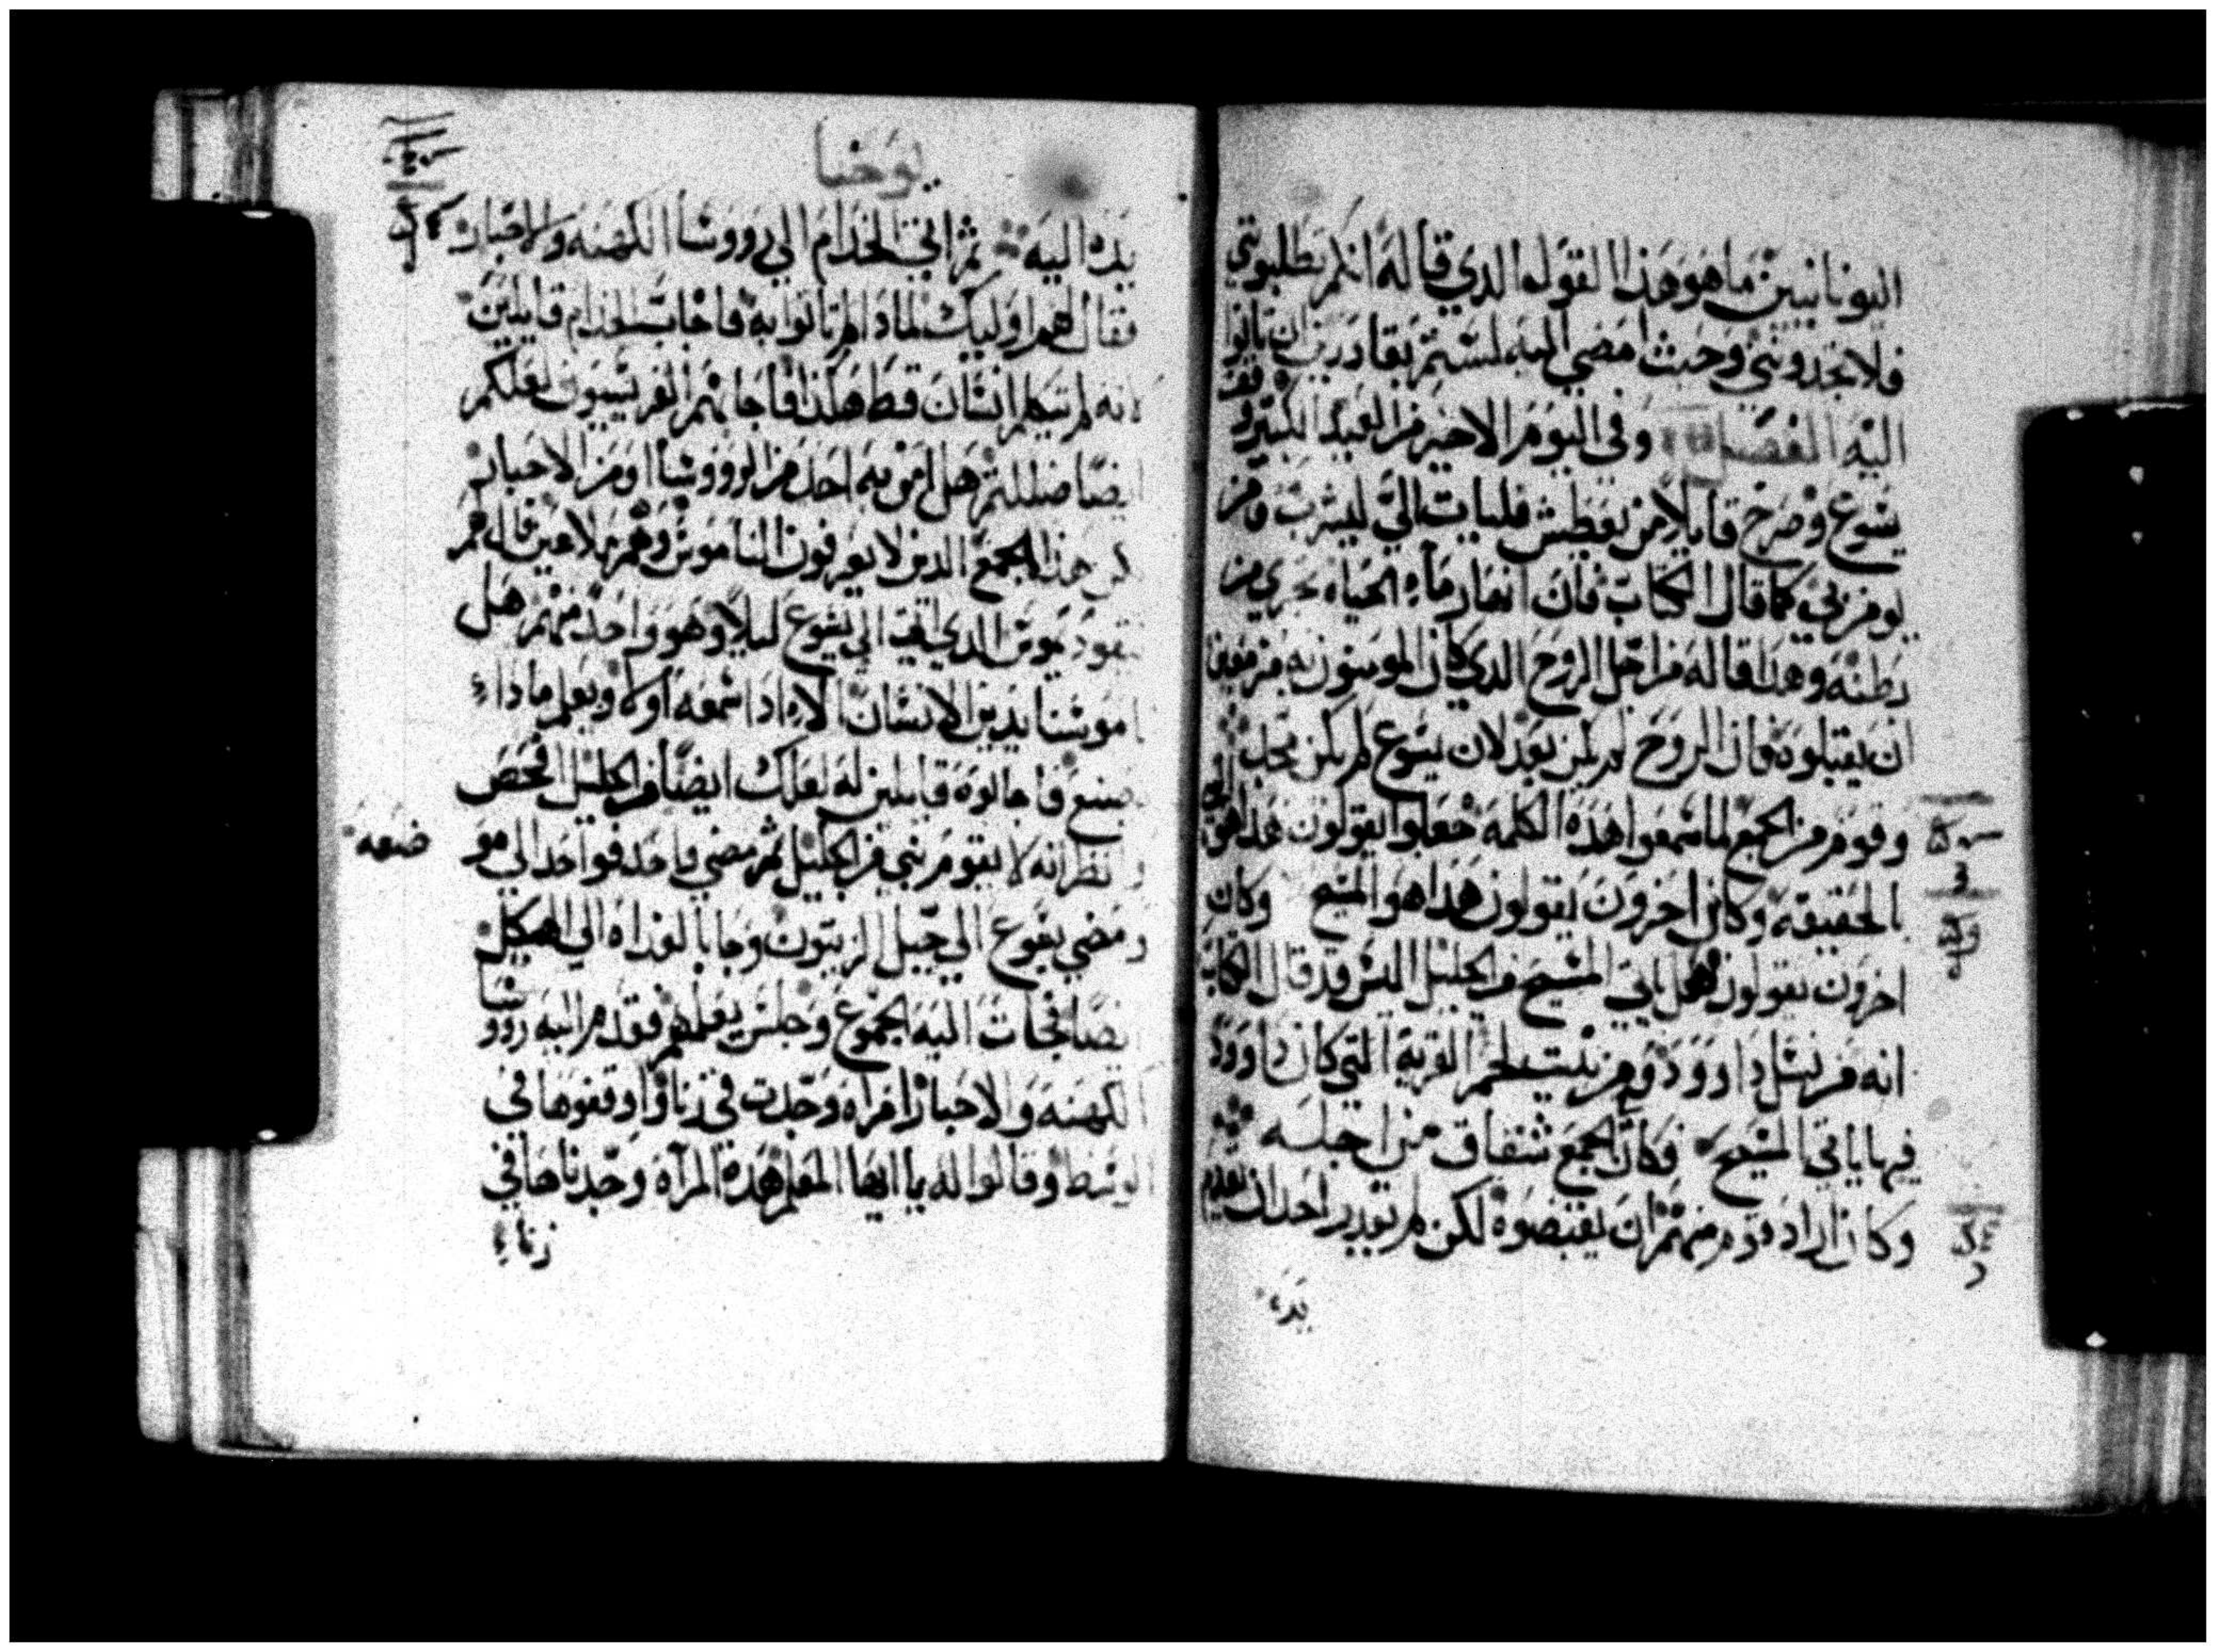 اليونانيين ما هو هذا القول الذي قاله انكم تطلبوني
فلا تجدونني وحيث امضي اليه لستم بقادرين ان تاتوا
اليه الفصل وفي اليوم الاخير من العيد الكبير وقف
يسوع وصرخ قايلا من يعطش فليات الي ليشرب ومن
يومن بي كما قال الكتاب فان انهار ماء الحياه تجري من
بطنه وهذا قاله من اجل الروح الدي كان المومنون به مزمعين
ان يقبلوه فان الروح لم يكن بعد لان يسوع لم يكن مجد
وقوم من الجمع لما سمعوا هذه الكلمه جعلوا يقولون هذا هو النبي
بالحقيقه وكان اخرون يقولون هذا هو المسيح وكان
اخرون يقولون هل ياتي المسيح من الجليل اليس قد قال الكتاب
انه من نسل داوود ومن بيت لحم القرية التي كان داوود
فيها ياتي المسيح فكان الجمع شقاق من اجله
وكان اراد قوم منهم ان يقبضوه لكن لم يقدر احد ان يقدم
يده
يوحنا
يده اليه ثم اتي الخدام الي رووسا الكهنه والاحبار
فقال لهم اوليك لمادا لم تاتوا به فاجابت الخدام قايلين
انه لم يتكلم انسان قط هكذا فاجابهم الفريسيون لعلكم
ايضا ضللتم هل امن به احد من الرووسا او من الاحبار
لكن هذا الجمع الذين لا يعرفون الناموس وهم ملاعين قال لهم
نيقوديموس الدي اتي الي يسوع ليلا وهو واحد منهم هل
ناموسنا يدين الانسان الا ادا سمعه اولا ويعلم مادا
يصنع فاجابوه قايلين له لعلك ايضا من الجليل افحص
وانظر انه لا يقوم نبي من الجليل ثم مضي واحد فواحد الي مو
ضعه
ومضي يسوع الي جبل الزيتون وجا بالغداه الي الهيكل
ايضا فجات اليه الجموع وجلس يعلمهم فقدم اليه روو
سا
الكهنه والاحبار امراه وجدت في زنا واوقفوها في
الوسط وقالوا له يا ايها المعلم هده المراه وجدناها في
زناء